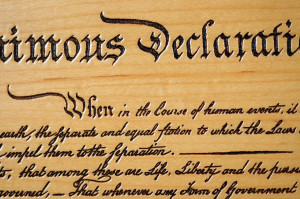 nimous Declaratio
When in the Course of human events, it
earth, the separate and equal station to which the Laws
d impel them to the separation.
ts, that among these are Life, Liberty and the pursu
overned, — That whenever any Form of Government